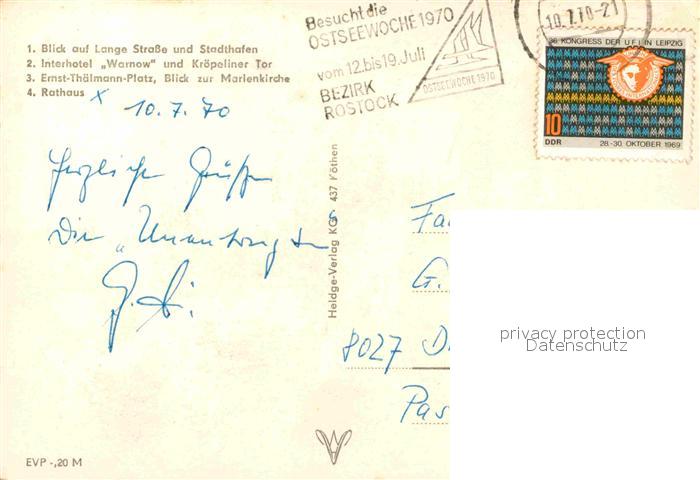 1. Blick auf Lange Straße und Stadthafen
2. Interhotel „Warnow" und Kröpeliner Tor
3. Ernst-Thälmann-Platz, Blick zur Marienkirche
4. Rathaus x
10.7.70
Herzliche Grüße
Die
Besucht die
OSTSEEWOCHE 1970
vom 12. bis 19. Juli
BEZIRK
ROSTOCK
OSTSEEWOCHE 1970
10.7.70-21
36. KONGRESS DER UFI IN LEIPZIG
10
DDR
28.-30. OKTOBER 1969
Heldge-Verlag KG 437 Köthen
Fa
G.
8027 D
Pas
privacy protection
Datenschutz
EVP -,20 M